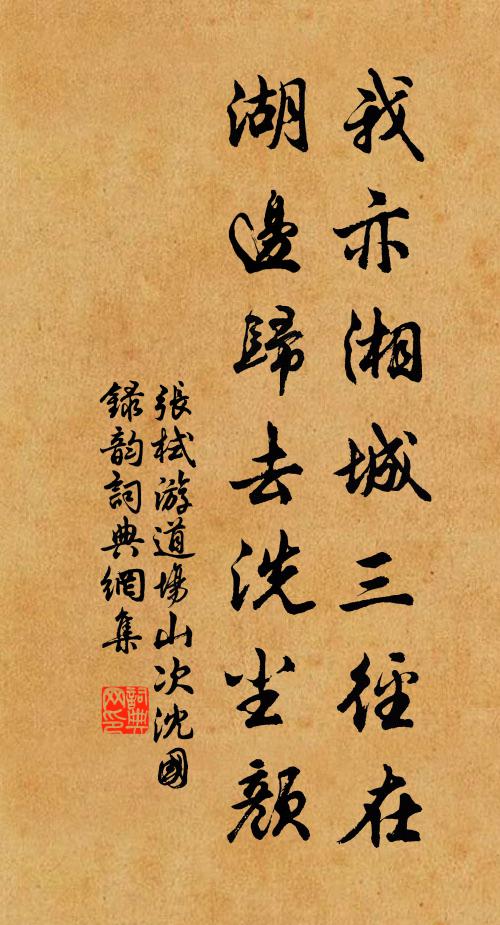 我亦湘城三徑在
湖邊歸去洗尘顏
張栻游道場山次沈國
錄韵詞典網集
詞典网印